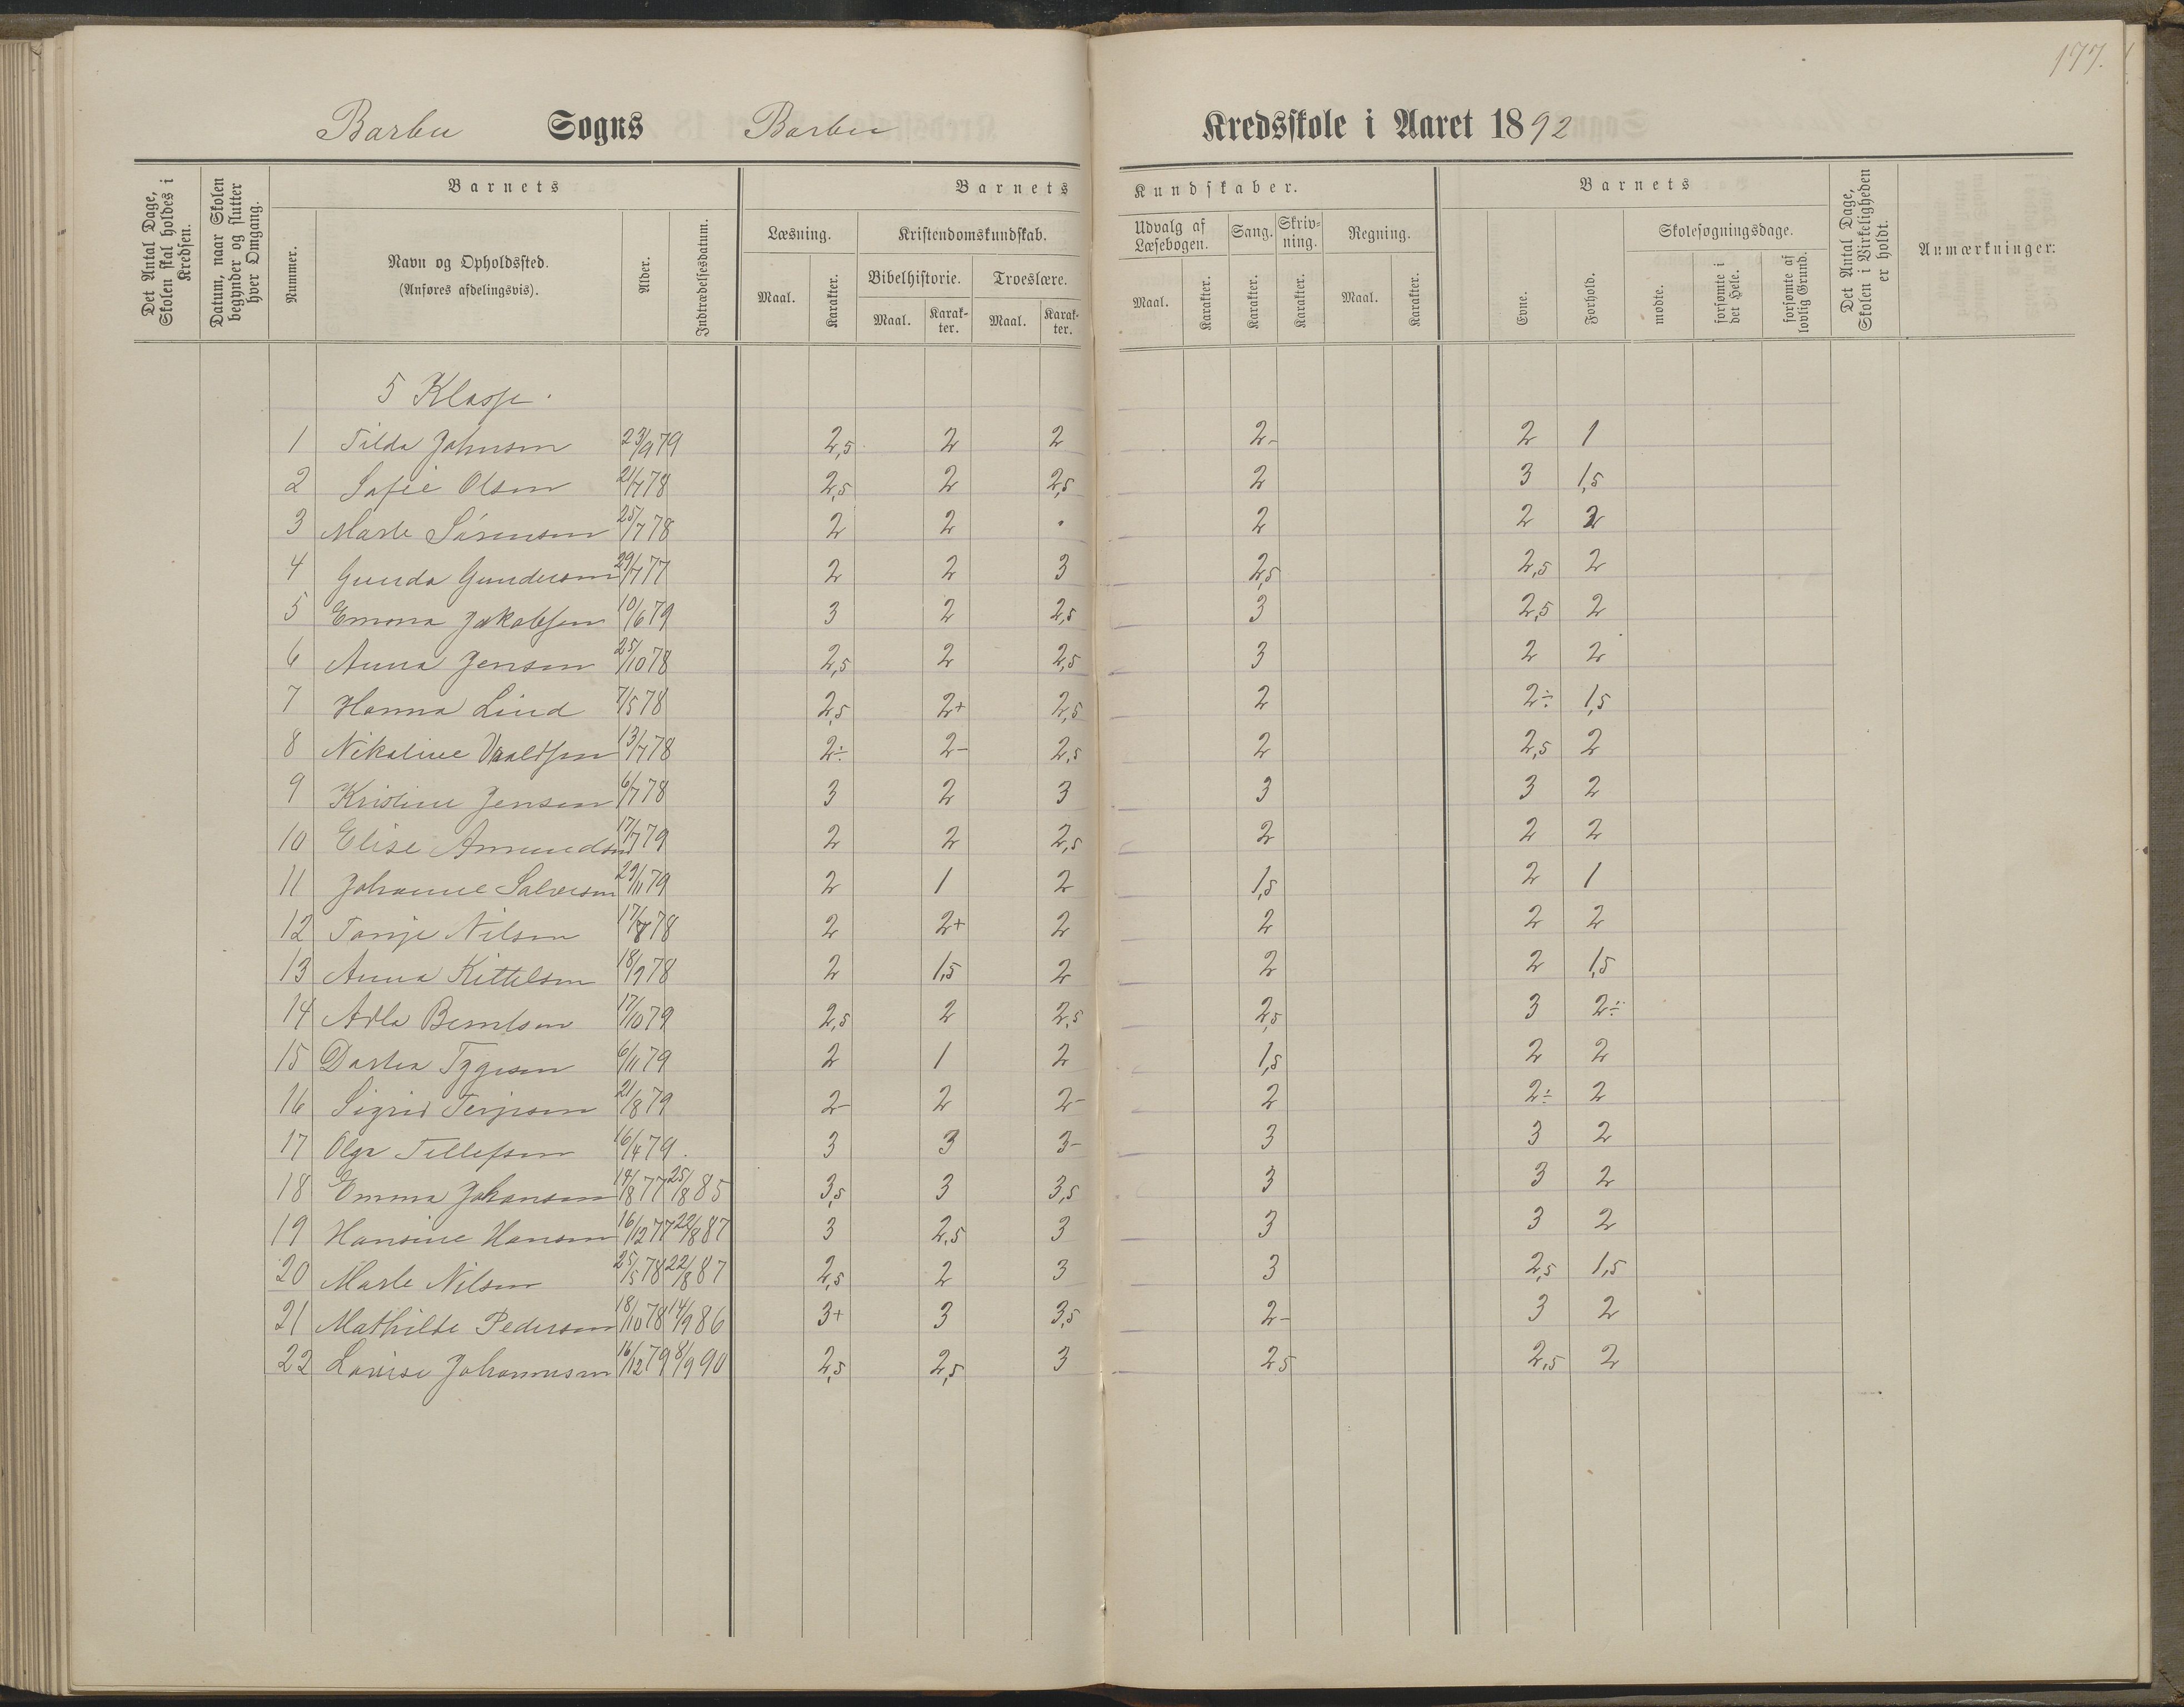 177.
Barbu Sogns Barbu Kredsskole i Aaret 1892
Det Antal Dage, Skolen skal holdes i Kredsen.
Datum, naar Skolen begynder og slutter hver Omgang.
Barnets
Nummer.
Navn og Opholdssted.
(Anføres afdelingsvis).
Alder.
Indtrædelsesdatum.
Barnets Kundskaber.
Læsning.
Maal.
Karakter.
Kristendomskundskab.
Bibelhistorie.
Maal.
Karakter.
Troeslære.
Maal.
Karakter.
Udvalg af Læsebogen.
Maal.
Karakter.
Sang.
Karakter.
Skrivning.
Karakter.
Regning.
Maal.
Karakter.
Barnets
Evne.
Forhold.
Skolesøgningsdage.
mødte.
forsømte i det Hele.
forsømte af lovlig Grund.
Det Antal Dage, Skolen i Virkeligheden er holdt.
Anmærkninger:
5 Klasse.
1 Tilda Johnsen 23/9 79 2,5 2 2 2- 2 1
2 Sofie Olsen 21/7 78 2,5 2 2,5 2 3 1,5
3 Marte Sørensen 25/7 78 2 2 . 2 2 2
4 Gunda Gundersen 29/7 77 2 2 3 2,5 2,5 2
5 Emma Jakobsen 10/6 79 3 2 2,5 3 2,5 2
6 Anna Jensen 25/10 78 2,5 2 2,5 3 2 2
7 Hanna Lind 7/5 78 2,5 2+ 2,5 2 2÷ 1,5
8 Nikoline 13/7 78 2÷ 2- 2,5 2 2,5 2
9 Kristine Jensen 6/7 78 3 2 3 3 3 2
10 Elise Amundsen 17/7 79 2 2 2,5 2 2 2
11 Johanne Salvesen 29/11 79 2 1 2 1,5 2 1
12 Tonje Nilsen 17/8 78 2 2+ 2 2 2 2
13 Anna Kittelsen 18/9 78 2 1,5 2 2 2 1,5
14 Adla Berntsen 17/10 79 2,5 2 2,5 2,5 3 2÷
15 Dortea Tygesen 6/11 79 2 1 2 1,5 2 2
16 Sigrid Terjesen 21/8 79 2- 2 2- 2 2÷ 2
17 Olga Tellefsen 16/4 79. 3 3 3- 3 3 2
18 Emma Johansen 14/8 77 25/8 85 3,5 3 3,5 3 3 2
19 Hansine Hansen 16/12 77 22/8 87 3 2,5 3 3 3 2
20 Marte Nilsen 25/5 78 22/8 87 2,5 2 3 3 2,5 1,5
21 Mathilde Pedersen 18/10 78 14/9 86 3+ 3 3,5 2- 3 2
22 Lovise Johannesen 16/12 79 8/9 90 2,5 2,5 3 2 5 2,5 2